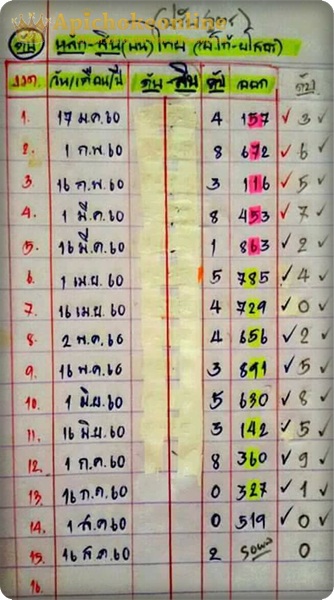 Apichokeonline
ดับ หลก-สิบ(บน)ไทย
งวด. วัน/เดือน/ปี ต้น-สิบ ดับ ออก ดับ
1. 17 ม.ค.60 4 157 ✓ 3 ✓
2. 1 ก.พ.60 8 672 ✓ 6 ✓
3. 16 ก.พ.60 3 116 ✓ 5 ✓
4. 1 มี.ค.60 8 453 ✓ 7 ✓
5. 16 มี.ค.60 1 863 ✓ 2 ✓
6. 1 เม.ย.60 5 785 ✓ 4 ✓
7. 16 เม.ย.60 4 729 ✓ 0 ✓
8. 2 พ.ค.60 4 656 ✓ 2 ✓
9. 16 พ.ค.60 3 891 ✓ 5 ✓
10. 1 มิ.ย.60 5 630 ✓ 8 ✓
11. 16 มิ.ย.60 3 142 ✓ 5 ✓
12. 1 ก.ค.60 8 360 ✓ 9 ✓
13. 16 ก.ค.60 0 327 ✓ 1 ✓
14. 1 ส.ค.60 0 519 ✓ 0 ✓
15. 16 ส.ค.60 2 รอผล 0
16.